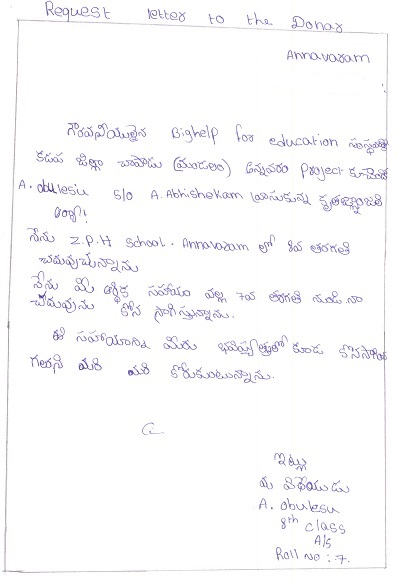 Request letter to the Donar
Annavaram
గౌరవనీయులైన Bighelp for education సంస్థవారికి
కడప జిల్లా చాపాడు (మండలం) అన్నవరం Project కు చెందిన
A. obulesu S/o A. Abhishekam వ్రాసుకున్న కృతజ్ఞాంజలి
అర్జీ!
నేను Z.P.H School. Annavaram లో 8వ తరగతి
చదువుచున్నాను
నేను మీ ఆర్థిక సహాయం వల్ల 7వ తరగతి నుండి నా
చదువును కొన సాగిస్తున్నాను.
ఈ సహాయాన్ని మీరు భవిష్యత్తులో కూడ కొనసాగించ
గలరని మరి మరి కోరుకుంటున్నాను.
ఇట్లు
మీ విధేయుడు
A. obulesu
8th class
A/s
Roll no : 7.